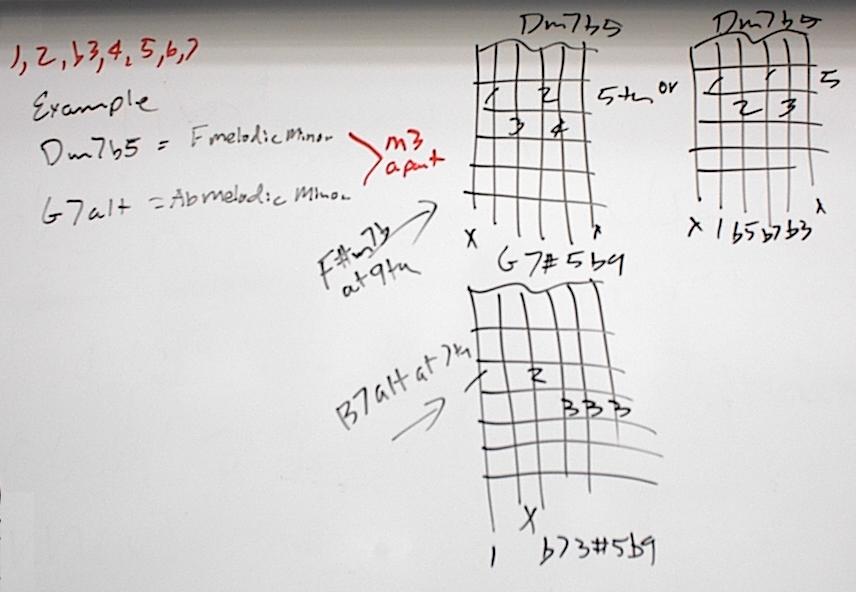 1, 2, b3, 4, 5, 6, 7
Example
Dm7b5 = F melodic minor
G7alt = Ab melodic minor
m3
apart
Dm7b5
1 2
3 4
5th or
x x
Dm7b5
1 1
2 3
5
x 1 b5 b7 b3 x
F#m7b
at 9th
G7#5b9
B7alt at 7th
1 2
3 3 3
x
1 b7 3 #5 b9